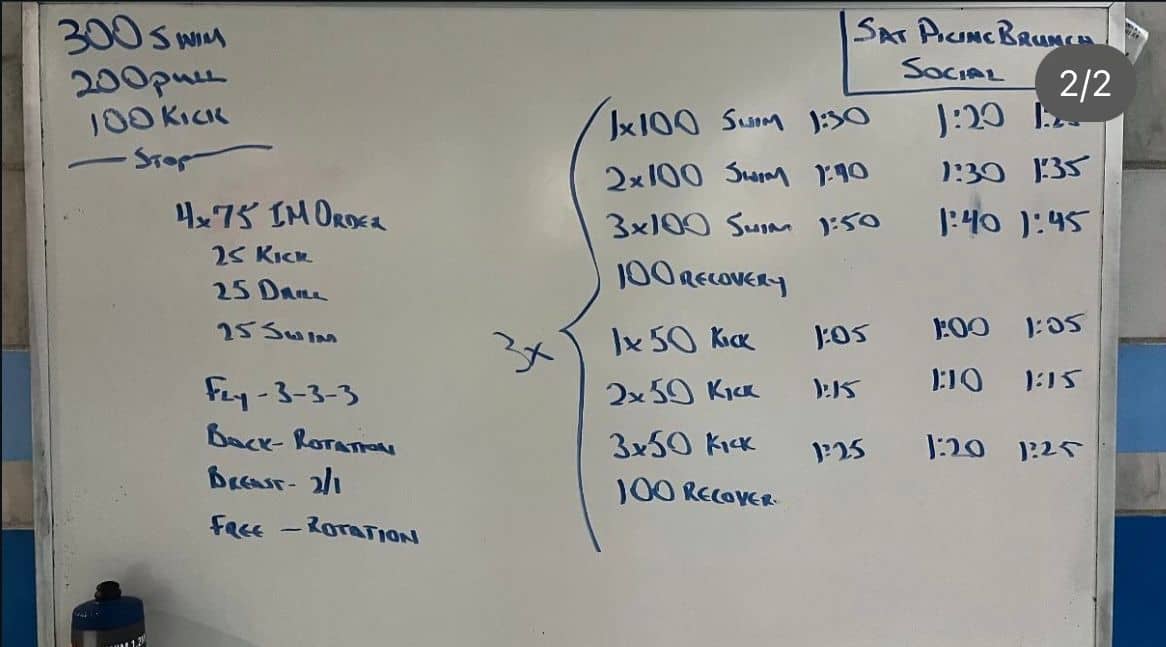 300 SWIM
200 PULL
100 KICK
STOP
4x75 IM ORDER
25 KICK
25 DRILL
25 SWIM
FLY - 3-3-3
BACK - ROTATION
BREAST - 2/1
FREE - ROTATION
SAT PICINC BRUNCH
SOCIAL
2/2
3x
1x100 SWIM 1:30 1:20
2x100 SWIM 1:40 1:30 1:35
3x100 SWIM 1:50 1:40 1:45
100 RECOVERY
1x50 KICK 1:05 1:00 1:05
2x50 KICK 1:15 1:10 1:15
3x50 KICK 1:25 1:20 1:25
100 RECOVER.